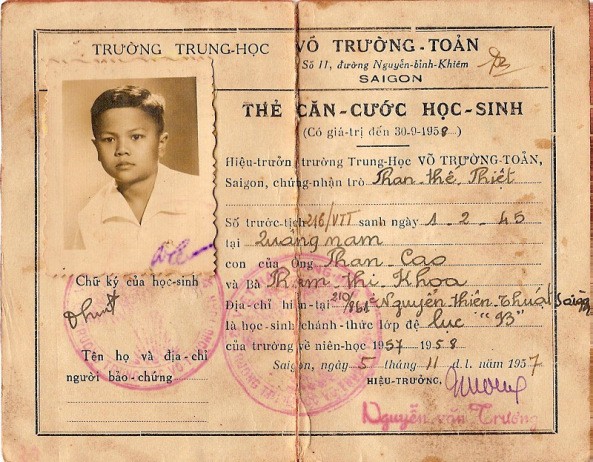 TRƯỜNG TRUNG-HỌC VÕ TRƯỜNG-TOẢN
Số 11, đường Nguyễn-bỉnh-Khiêm
SAIGON
THẺ CĂN-CƯỚC HỌC-SINH
(Có giá-trị đến 30-9-1958)
Hiệu-trưởng trường Trung-Học VÕ TRƯỜNG-TOẢN,
Saigon, chứng-nhận trò Phan thế Thiệt
Số trước-tịch 216/VTT sanh ngày 1-2-45
tại Quảng nam
con của Ông Phan Cao
và Bà Phạm thi Khoa
Địa-chỉ hiện-tại 210/ Nguyễn thiện Thuật Saigon
là học-sinh chánh-thức lớp đệ lục "B3"
của trường về niên-học 1957-1958
Saigon, ngày 5 tháng 11 d.l. năm 1957
HIỆU-TRƯỞNG,
Nguyễn văn Trương
Chữ ký của học-sinh
Tên họ và địa-chỉ
người bảo-chứng